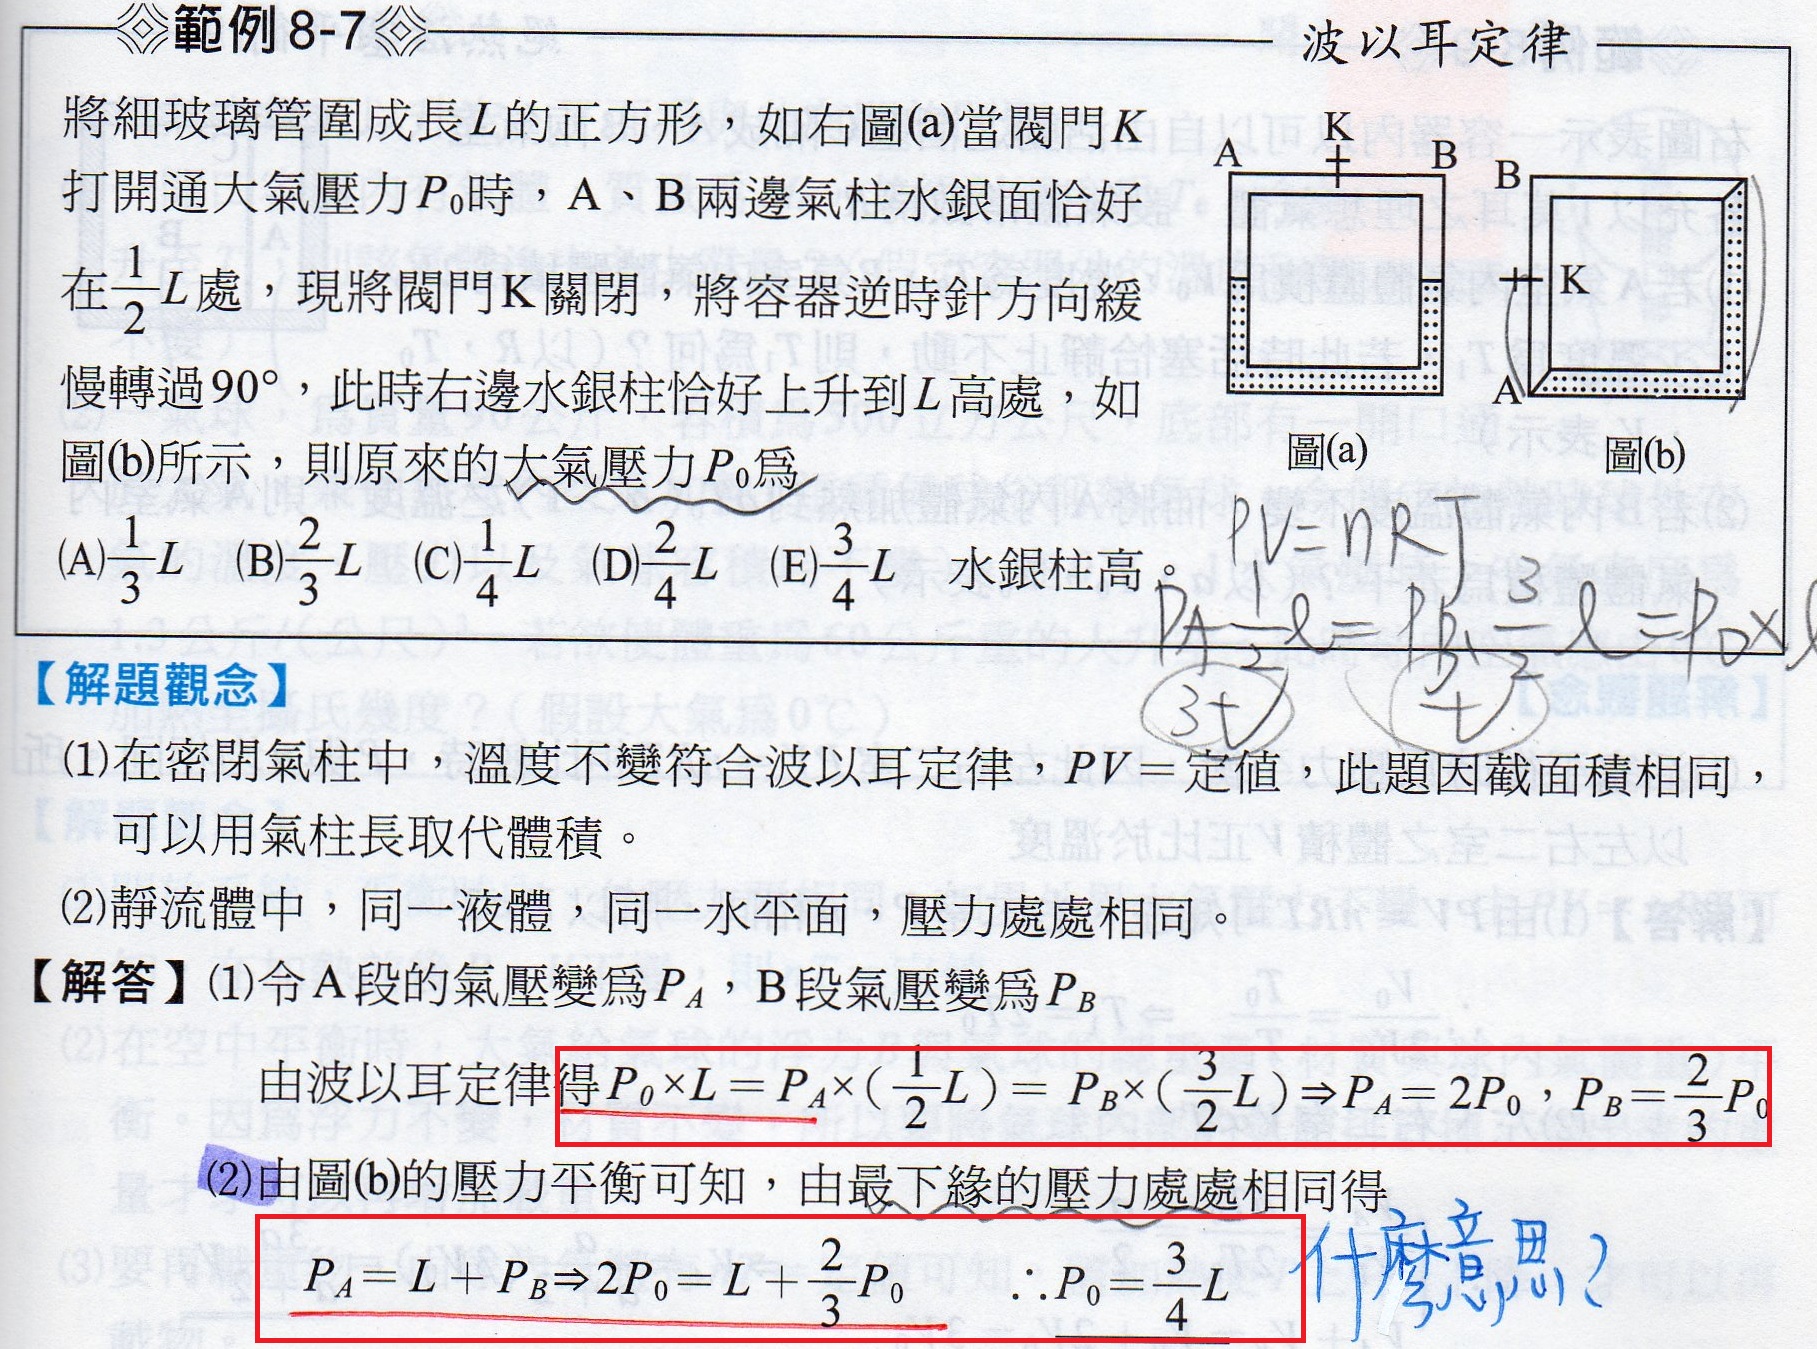 範例 8-7
波以耳定律
將細玻璃管圍成長L的正方形，如右圖(a)當閥門K
打開通大氣壓力P₀時，A、B兩邊氣柱水銀面恰好
在1/2 L處，現將閥門K關閉，將容器逆時針方向緩
慢轉過90°，此時右邊水銀柱恰好上升到L高處，如
圖(b)所示，則原來的大氣壓力P₀爲
(A) 1/3 L (B) 2/3 L (C) 1/4 L (D) 2/4 L (E) 3/4 L 水銀柱高。
K
A B
圖(a)
B
K
A
圖(b)
PV=nRT
PA 1/2 l = PB 3/2 l = P0×l
3t t
【解題觀念】
(1)在密閉氣柱中，溫度不變符合波以耳定律，PV＝定值，此題因截面積相同，
可以用氣柱長取代體積。
(2)靜流體中，同一液體，同一水平面，壓力處處相同。
【解答】(1)令A段的氣壓變爲P_A，B段氣壓變爲P_B
由波以耳定律得P₀×L＝P_A×(1/2 L)＝P_B×(3/2 L)⇒P_A＝2P₀，P_B＝2/3 P₀
(2)由圖(b)的壓力平衡可知，由最下緣的壓力處處相同得
P_A＝L＋P_B⇒2P₀＝L＋2/3 P₀ ∴P₀＝3/4 L
什麼意思？